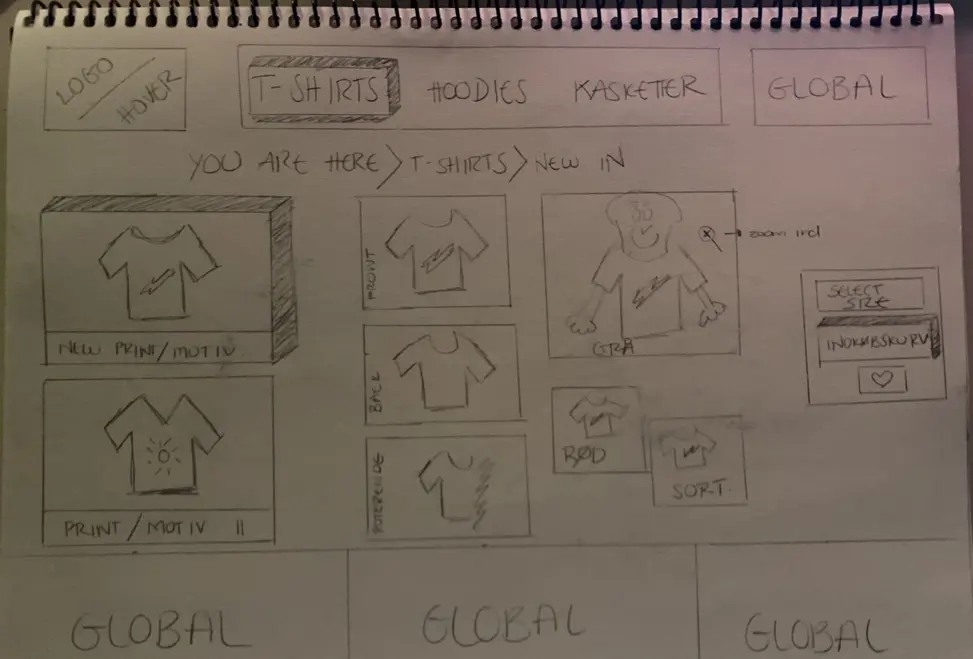 LOGO
HOVER
T-SHIRTS HOODIES KASKETTER GLOBAL
YOU ARE HERE > T-SHIRTS > NEW IN
NEW PRINT/MOTIV
PRINT/MOTIV II
FRONT
BACK
zoom ind
GRÅ
RØD
SORT.
SELECT
SIZE
INDKØBSKURV
GLOBAL GLOBAL GLOBAL